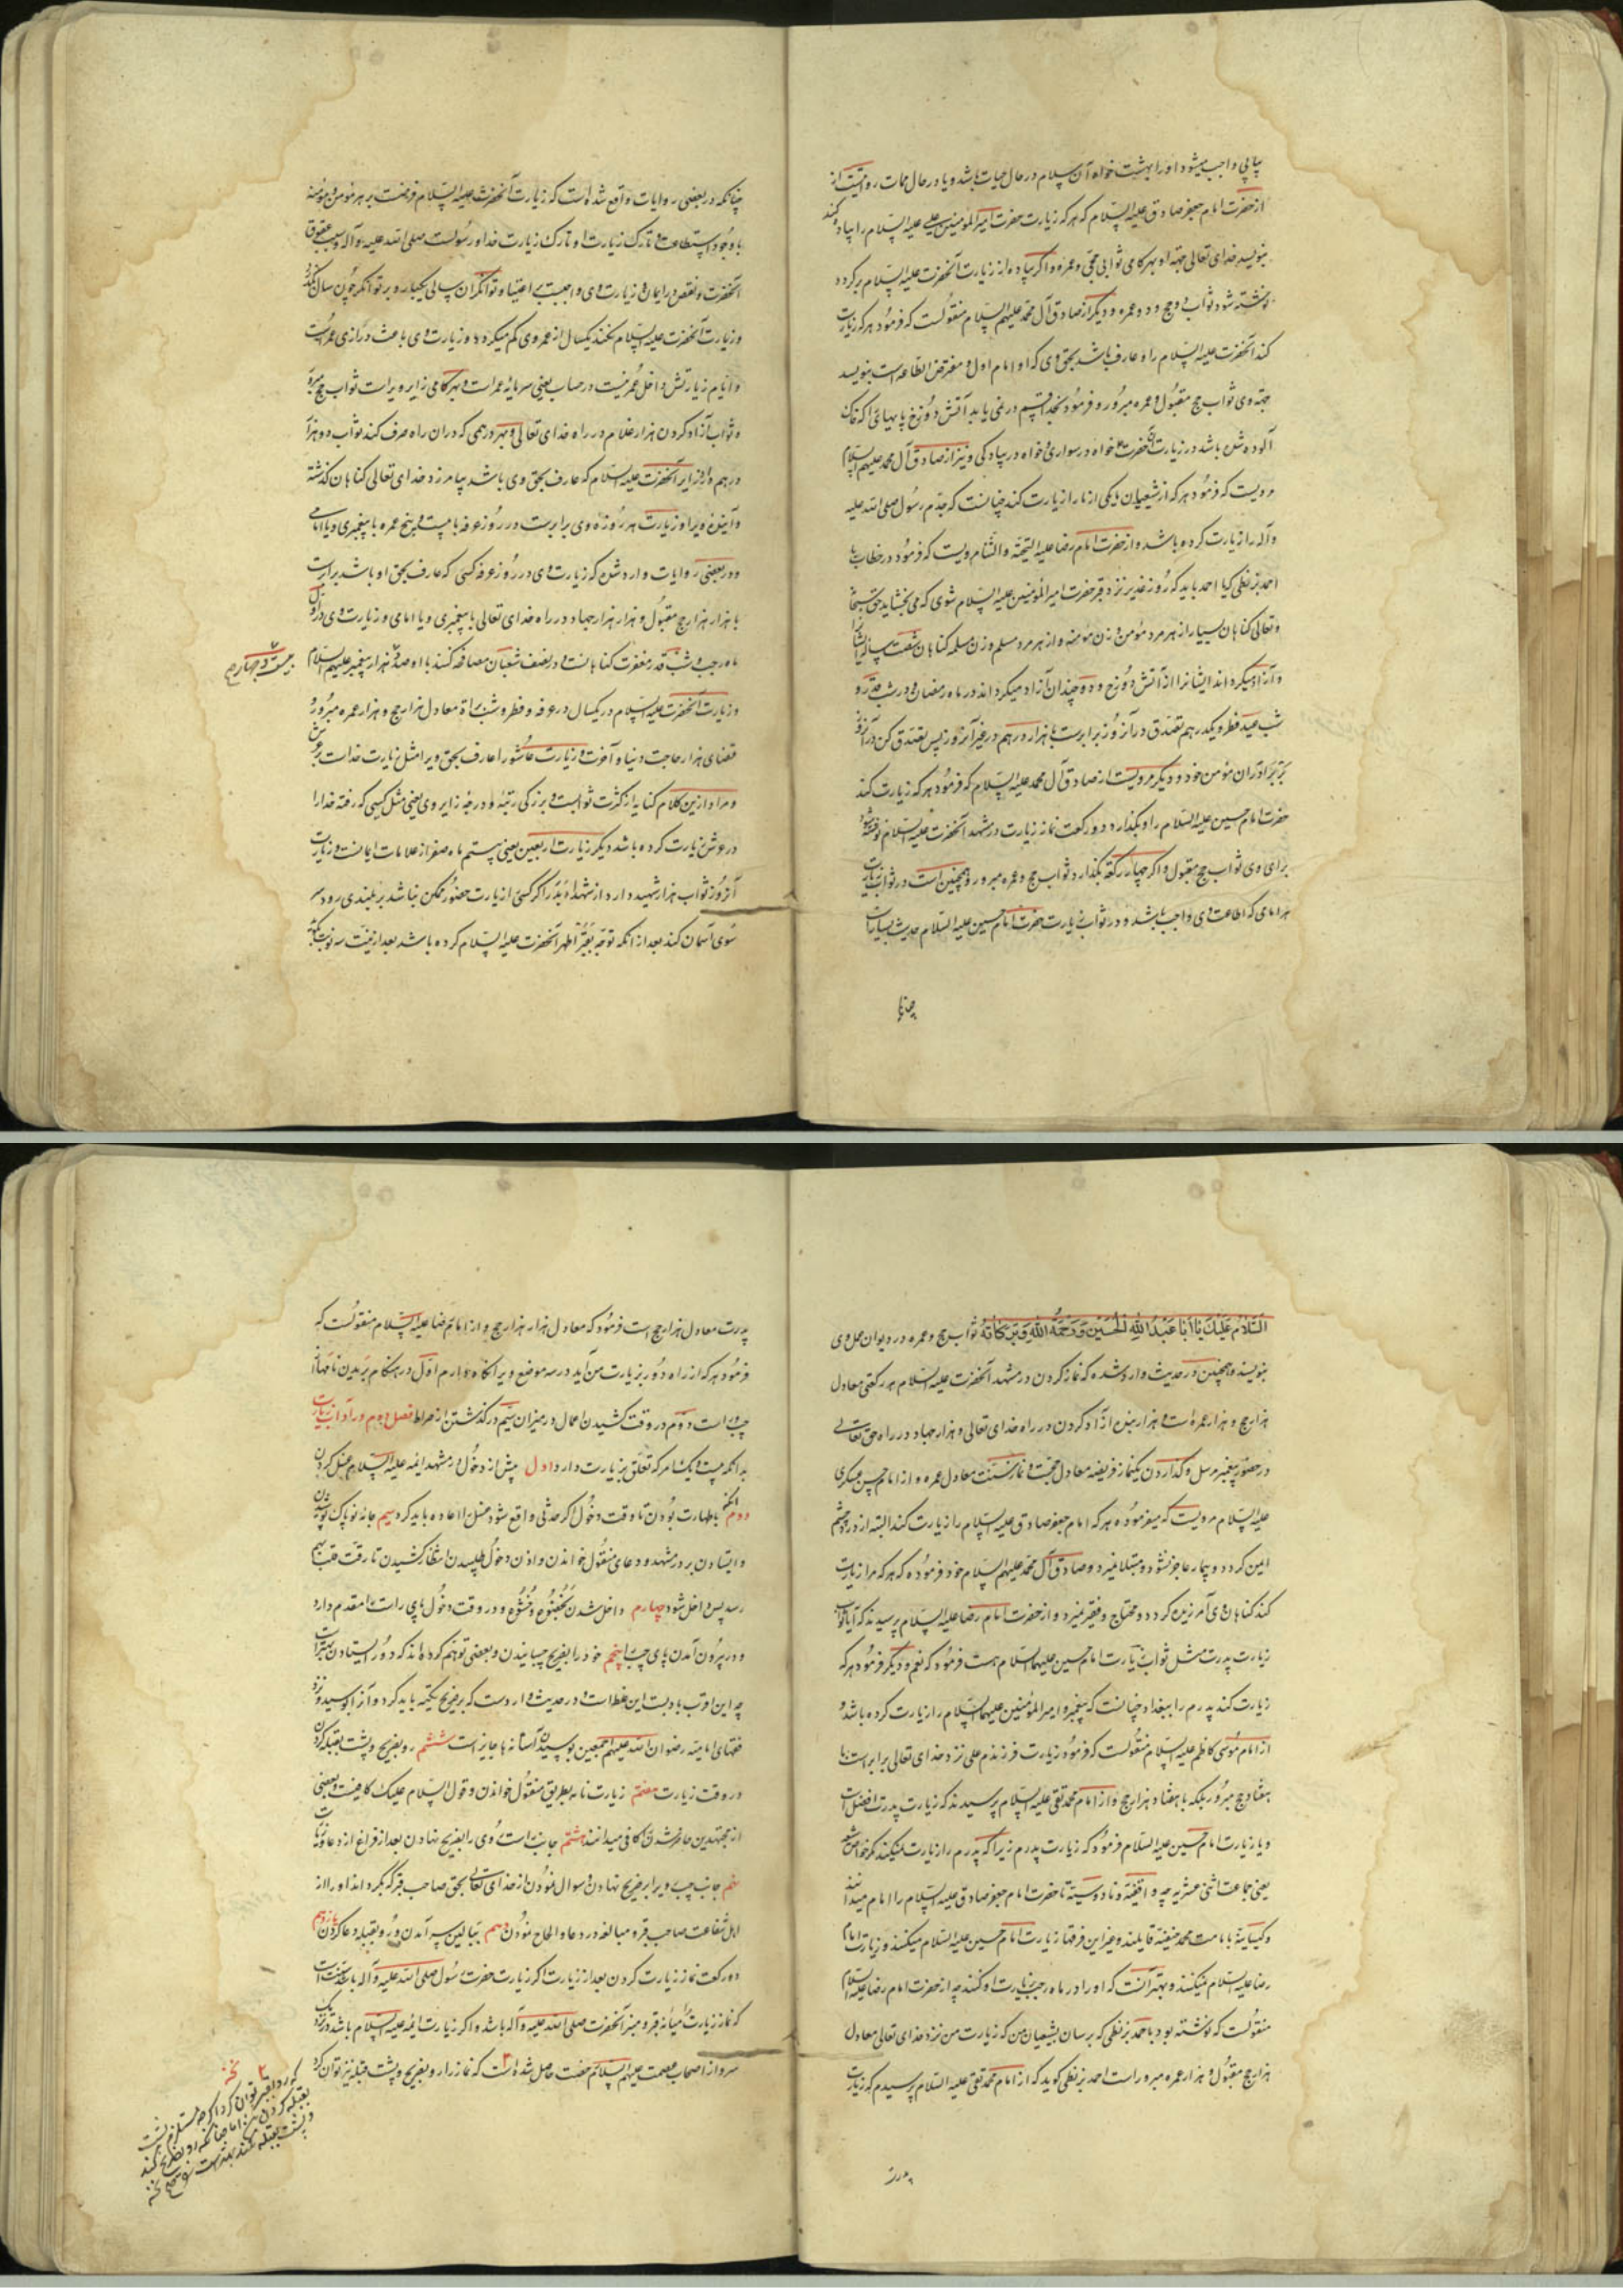 پیاپی واجب میشود اورا بهشت خواه آن سلام در حال حیات باشد و یا در حال ممات روایتست از
از حضرت امام جعفر صادق علیه السلام که هر که زیارت حضرت امیر المؤمنین علی علیه السلام را پیاده کند
بنویسد خدای تعالی جهة او بهر کامی ثواب حجی و عمره و اکر پیاده از زیارت آنحضرت علیه السلام برکردد
نوشته شود ثواب دو حج و دو عمره و دیگر از صادق آل محمد علیهم السلام منقولست که فرمود هر که زیارت
کند آنحضرت علیه السلام را و عارف باشد بحق وی که او امام اول و مفترض الطاعه است بنویسد
جهة وی ثواب حج مقبول و عمره مبرور و فرمود بخدا قسم در نمی یابد آتش دوزخ پایهایی را که خاک
آلوده شده باشد در زیارت آنحضرت خواه در سواری خواه در پیادکی و نیز از صادق آل محمد علیهم السلام
مرویست که فرمود هر که از شیعیان ما یکی از ما را زیارت کند چنانست که جدم رسول صلی الله علیه
و آله را زیارت کرده باشد و از حضرت امام رضا علیه التحیة و الثنا مرویست که فرمود در خطاب با
احمد بزنطی که یا احمد باید که روز غدیر نزد قبر حضرت امیر المؤمنین علیه السلام شوی که می بخشاید حق سبحانه
و تعالی کناهان بسیار از هر مرد مؤمن و زن مؤمنه و از هر مرد مسلم و زن مسلمه کناهان شصت ساله ایشان را
و آزاد میکرداند ایشانرا از آتش دوزخ و دو چندان آزاد میکرداند در ماه رمضان و در شب قدر و
شب عید فطر و یکدرهم تصدق در آنروز برابرست با هزار درهم در غیر آنروز پس تصدق کن در آنروز
بر برادران مؤمن خود و دیگر مرویست از صادق آل محمد علیه السلام که فرمود هر که زیارت کند
حضرت امام حسین علیه السلام را و بکذارد دو رکعت نماز زیارت در مشهد آنحضرت علیه السلام نوشته شود
برای وی ثواب حج مقبول و اکر چهار رکعت بکذارد ثواب حج و عمره مبرور و همچنین است در ثواب زیارت
هر امامی که اطاعت وی واجب باشد و در ثواب زیارت حضرت امام حسین علیه السلام حدیث بسیار است
چنانکه در بعضی روایات واقع شده است که زیارت آنحضرت علیه السلام فرضست بر هر مؤمن و مؤمنه
با وجود استطاعت و تارک زیارت او تارک زیارت خدا و رسولست صلی الله علیه و آله و سبب عقوق
آنحضرت و نقص در ایمان و زیارت وی واجبست بر اغنیا و توانکران سالی یکبار و بر توانکر چون سال بکذرد
و زیارت آنحضرت علیه السلام نکند یکسال از عمر وی کم میکردد و زیارت وی باعث درازی عمرست
و ایام زیارتش داخل عمر نیست در حساب یعنی سرمایه عمر است و بهر کامی زایر ویراست ثواب حج مبرور
و ثواب آزاد کردن هزار غلام در راه خدای تعالی و بهر درهمی که در آن راه صرف کند ثواب دو هزار
درهم و از زایر آنحضرت علیه السلام که عارف بحق وی باشد بیامرزد خدای تعالی کناهان کذشته
و آینده ویرا و زیارت هر روزه وی برابرست در روز عرفه با بیست و پنج عمره با پیغمبری و یا امامی
و در بعضی روایات وارد شده که زیارت وی در روز عرفه کسی که عارف بحق او باشد برابرست
با هزار هزار حج مقبول و هزار هزار جهاد در راه خدای تعالی با پیغمبری و یا امامی و زیارت وی در اول
ماه رجب و شب قدر مغفرت کناهانست و در نصف شعبان مصافحه کنند با او صد هزار پیغمبر علیهم السلام
بیست و چهار
و زیارت آنحضرت علیه السلام در یکسال در عرفه و فطر و شب براة معادل هزار حج و هزار عمره مبرور و
قضای هزار حاجت دنیا و آخرت و زیارت عاشورا عارف بحق ویرا مثل زیارت خداست بر عرش
و مراد ازین کلام کنایه از کثرت ثوابست و بزرکی رتبه و درجه زایر وی یعنی مثل کسی که رفته خدا را
در عرش زیارت کرده باشد دیگر زیارت اربعین یعنی بیستم ماه صفر از علامات ایمانست و زیارت
آنروز ثواب هزار شهید دارد از شهداء بدر اکر کسی را زیارت حضور ممکن نباشد بر بلندی رود و سر
سوی آسمان کند بعد از آنکه توجه بقبر اطهر آنحضرت علیه السلام کرده باشد بعد از نیت سه نوبت بگوید
السَّلامُ عَلَيْكَ يَا أَبَا عَبْدِ اللهِ الحُسَيْنِ وَرَحْمَةُ اللهِ وَبَرَكَاتُهُ ثواب حج و عمره در دیوان عمل وی
بنویسد و همچنین در حدیث وارد شده که نماز کردن در مشهد آنحضرت علیه السلام هر رکعتی معادل
هزار حج و هزار عمره است و هزار بنده آزاد کردن در راه خدای تعالی و هزار جهاد در راه حق تعالی
در حضور پیغمبر مرسل و کذاردن یکنماز فریضه معادل حجست و نماز سنت معادل عمره و از امام حسن عسکری
علیه السلام مرویست که میفرموده هر که امام جعفر صادق علیه السلام را زیارت کند البته از درد چشم
ایمن کردد و بیمار عاجز نشود و مبتلا نمیرد و صادق آل محمد علیهم السلام خود فرموده که هر که مرا زیارت
کند کناهان وی آمرزیده کردد و محتاج و فقیر نمیرد و از حضرت امام رضا علیه السلام پرسیدند که آیا ثواب
زیارت پدرت مثل ثواب زیارت امام حسین علیهما السلام هست فرمود که نعم و دیگر فرمود هر که
زیارت کند پدرم را ببغداد چنانست که پیغمبر و امیر المؤمنین علیهما السلام را زیارت کرده باشد و
از امام موسی کاظم علیه السلام منقولست که فرمود زیارت فرزندم علی نزد خدای تعالی برابرست با
هفتاد حج مبرور بلکه با هفتاد هزار حج و از امام محمد تقی علیه السلام پرسیدند که زیارت پدرت افضل است
و یا زیارت امام حسین علیه السلام فرمود که زیارت پدرم زیرا که پدرم را زیارت نمیکنند مکر خواص شیعه
یعنی جماعت اثنی عشریه چه واقفیه و ناووسیه تا حضرت امام جعفر صادق علیه السلام را امام میدانند
و کیسانیه بامامت محمد حنفیه قایلند و غیر این فرقها زیارت امام حسین علیه السلام میکنند و زیارت امام
رضا علیه السلام نمیکنند و بهتر آنست که او را در ماه رجب زیارت کنند چه از حضرت امام رضا علیه السلام
منقولست که نوشته بود باحمد بزنطی که برسان بشیعیان من که زیارت من نزد خدای تعالی معادل
هزار حج مقبول و هزار عمره مبرور است احمد بزنطی کوید که از امام محمد تقی علیه السلام پرسیدم که زیارت
پدرت معادل هزار حج است فرمود که معادل هزار هزار حج و از امام رضا علیه السلام منقولست که
فرمود هر که از راه دور بزیارت من آید در سه موضع ویرا نکاه دارم اول در هنکام پریدن نامهای
چپ و راست دوم در وقت کشیدن اعمال در میزان سیم در کذشتن از صراط فصل دوم در آداب زیارت
بدانکه بیست و یک امر که تعلق بزیارت دارد اول پیش از دخول در مشهد ائمه علیه السلام غسل کردن
دوم آنکه باطهارت بودن تا وقت دخول اکر حدثی واقع شود غسل را اعاده باید کرد سیم جامه نو پاک پوشیدن
و ایستادن بر در مشهد و دعای منقول خواندن و اذن دخول طلبیدن و انتظار کشیدن تا رقت قلب بهم
رسد پس داخل شود چهارم داخل شدن بخضوع و خشوع و در وقت دخول پای راست را مقدم دارد
و در بیرون آمدن پای چپ را پنجم خود را بضریح چسبانیدن و بعضی توهم کرده اند که دور ایستادن بهتر است
چه این اقرب بادبست این غلط است و در حدیث وارد دست که بر ضریح تکیه باید کرد و آنرا بوسید و نزد
فقهای امامیه رضوان الله علیهم اجمعین بوسیدن آستانه ها جایز است ششم رو بضریح و پشت بقبله کردن
در وقت زیارت هفتم زیارت نامه بطریق منقول خواندن و قول السلام علیک کافیست و بعضی
از مجتهدین حاضر شدن را کافی میدانند هشتم جانب راست روی را بضریح نهادن بعد از فراغ از دعا و زیارت
نهم جانب چپ ویرا بر ضریح نهادن و سوال نمودن از خدای تعالی بحق صاحب قبر که بکرداند او را از
اهل شفاعت صاحب قبر و مبالغه در دعا و الحاح نمودن دهم ببالین سر آمدن و رو بقبله دعا کردن یازدهم
دو رکعت نماز زیارت کردن بعد از زیارت اکر زیارت حضرت رسول صلی الله علیه و آله باشد سنت است
که نماز زیارت را میانه قبر و منبر آنحضرت صلی الله علیه و آله باشد و اکر زیارت ائمه علیه السلام باشد در نزدیک
سر و از اصحاب عصمت علیهم السلام رخصت حاصل شده است که نماز را رو بضریح و پشت قبله نیز توان کرد